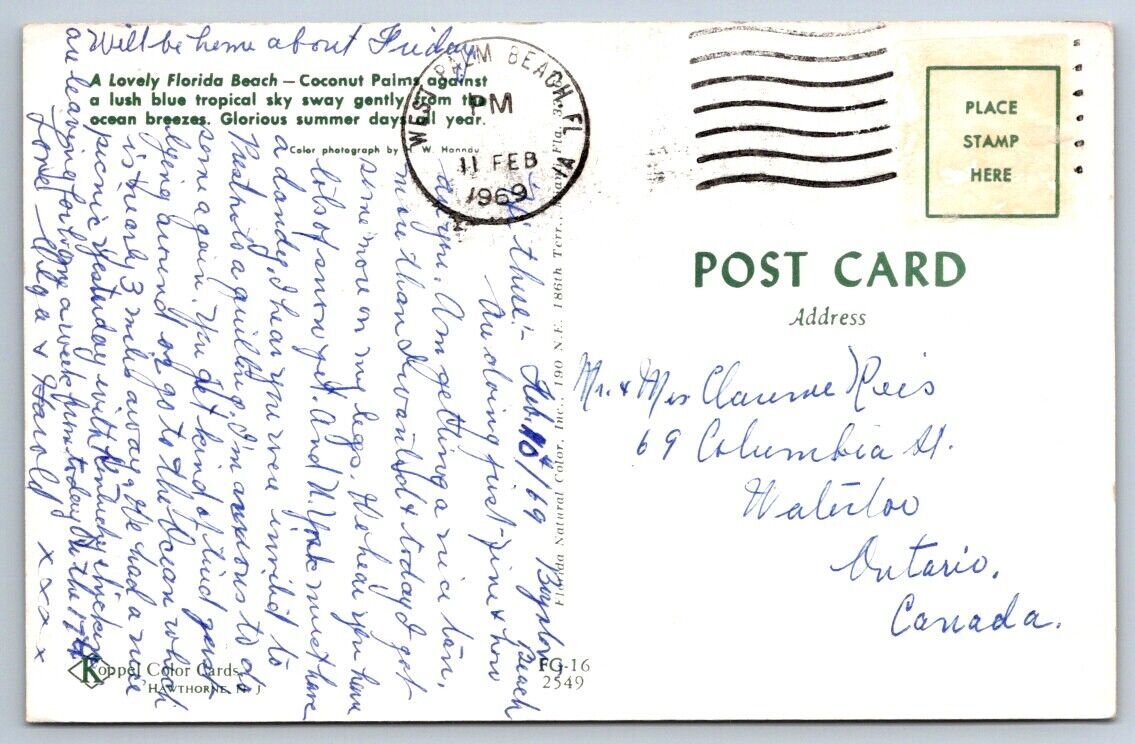 Will be home about Friday
A Lovely Florida Beach — Coconut Palms against
a lush blue tropical sky sway gently from the
ocean breezes. Glorious summer days all year.
Color photograph by W. Hannau
WEST PALM BEACH, FLA
PM
11 FEB
1969
PLACE
STAMP
HERE
POST CARD
Address
Mr. & Mrs Clarence Reis
69 Columbia St.
Waterloo
Ontario.
Canada.
Hi there! - Feb. 10/69 Boynton Beach
We doing just fine & how
are you. Am getting a nice tan,
more than I wanted & today I got
some more on my legs. We hear you have
lots of snow yet. And N. York must have
a dandy. I hear you were invited to
a quilting. I'm anxious to do
some again. You get kind of tired just
lying around or go to the Ocean which
is nearly 3 miles away. We had a nice
picnic yesterday with Kentucky chicken
are leaving for home a week from today the 17th
Love Olga & Harold x x x x
Florida Natural Color, Inc., 190 N.E. 186th Terr., Fla.
FG-16
2549
Koppel Color Cards
HAWTHORNE, N J